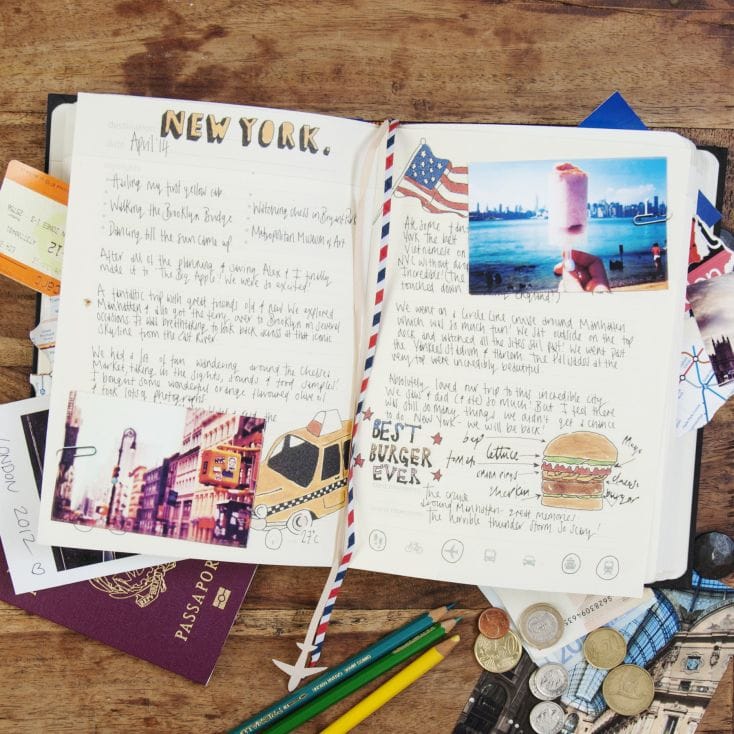 NEW YORK.
April 14
Hailing my first yellow cab
Walking the Brooklyn Bridge
Dancing till the sun came up
Watching chess in Bryant Park
Metropolitan Museum of Art
After all of the planning & saving Alex & I finally
made it to 'The Big Apple'! We were so excited!
A fantastic trip with great friends old & new. We explored
Manhattan & also got the ferry over to Brooklyn on several
occasions. It was breathtaking to look back across at that iconic
skyline from the East River
We had a lot of fun wandering around the Chelsea
Market, taking in the sights, sounds & food samples!
I bought some wonderful orange flavoured olive oil
& took lots of photographs
27°c
York. The best
Vietnamese
NYC without
Incredible! (The
touched down
England!)
We went on a Circle Line cruise around Manhattan
which was so much fun! We sat outside on the top
deck and watched all the sites sail past! We went past
the Yankees Stadium & Harlem. The Palisades at the
very top were incredibly beautiful
Absolutely loved our trip to this incredible city.
We saw & did (& ate) so much! But I feel there
was still so many things we didn't get a chance
to do. New York - we will be back!
BEST
BURGER
EVER
lettuce
onion rings
gherkin
Mayo
cheese
burger
The cruise
around Manhattan - great memories
The horrible thunder storm. So scary!
LONDON 2012
PASSAPORT